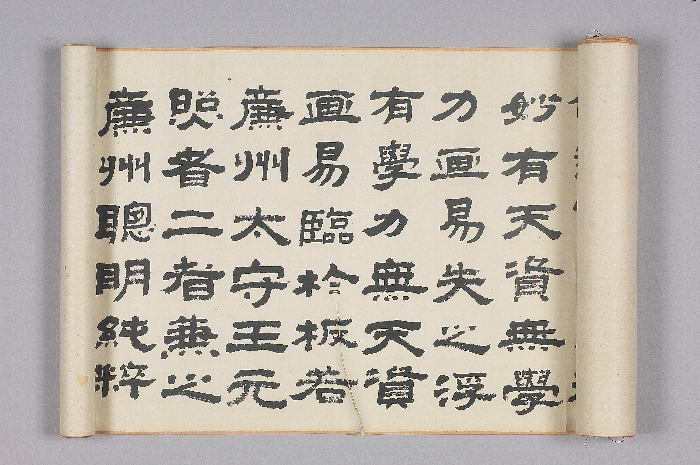 妙有天資無學
力画易失之浮
有學力無天資
画易臨於板若
廉州太守王元
照者二者兼之
廉州聰明純粹